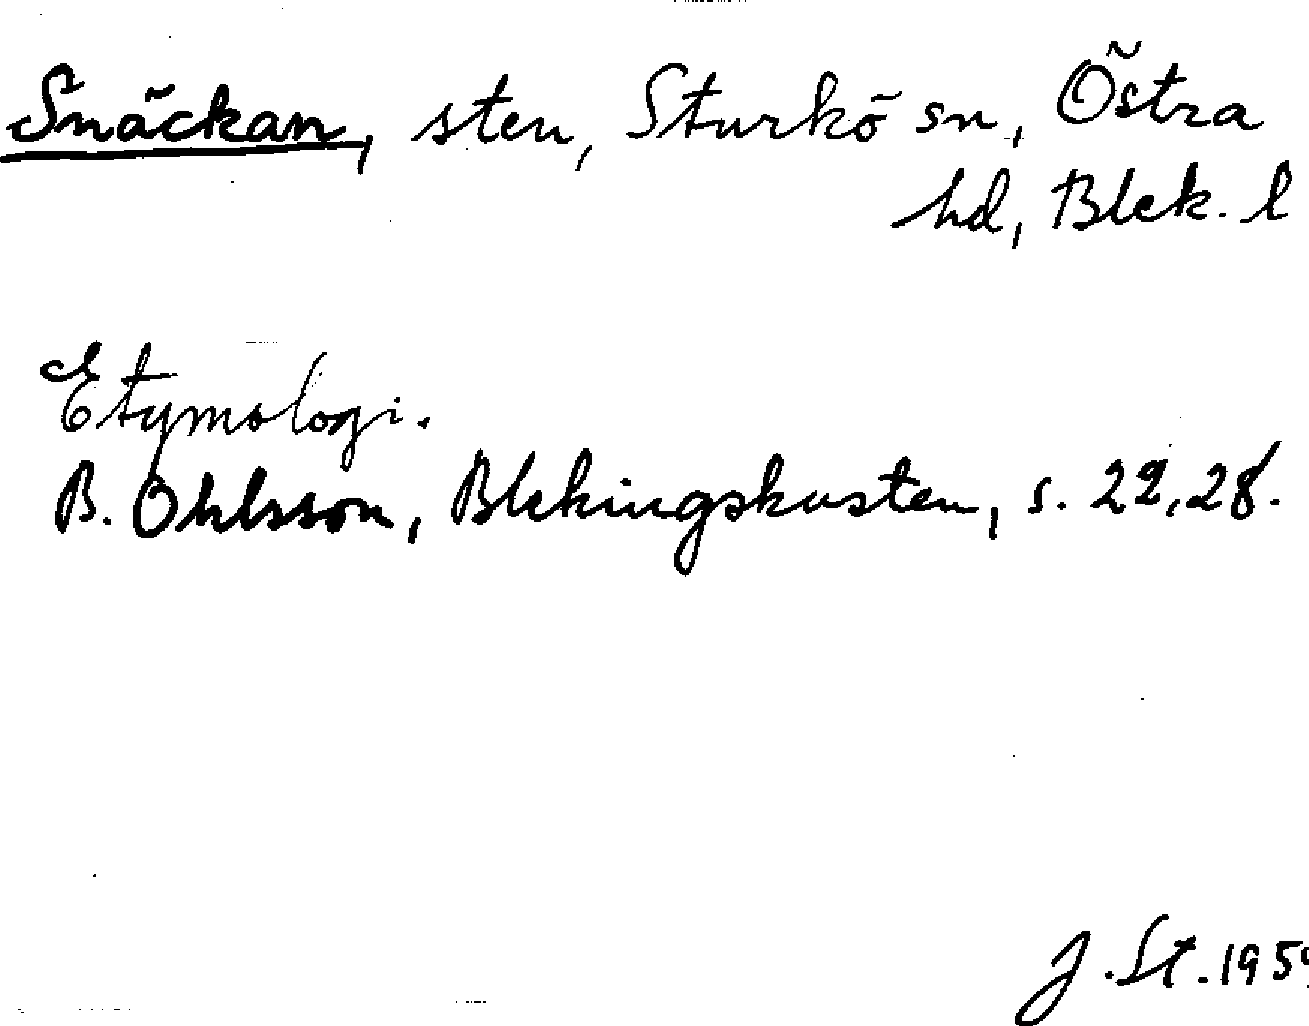 Snäckan, sten, Sturkö sn, Östra
hd, Blek. l
Etymologi.
B. Ohlsson, Blekingskusten, s. 22, 28.
J. St. 195